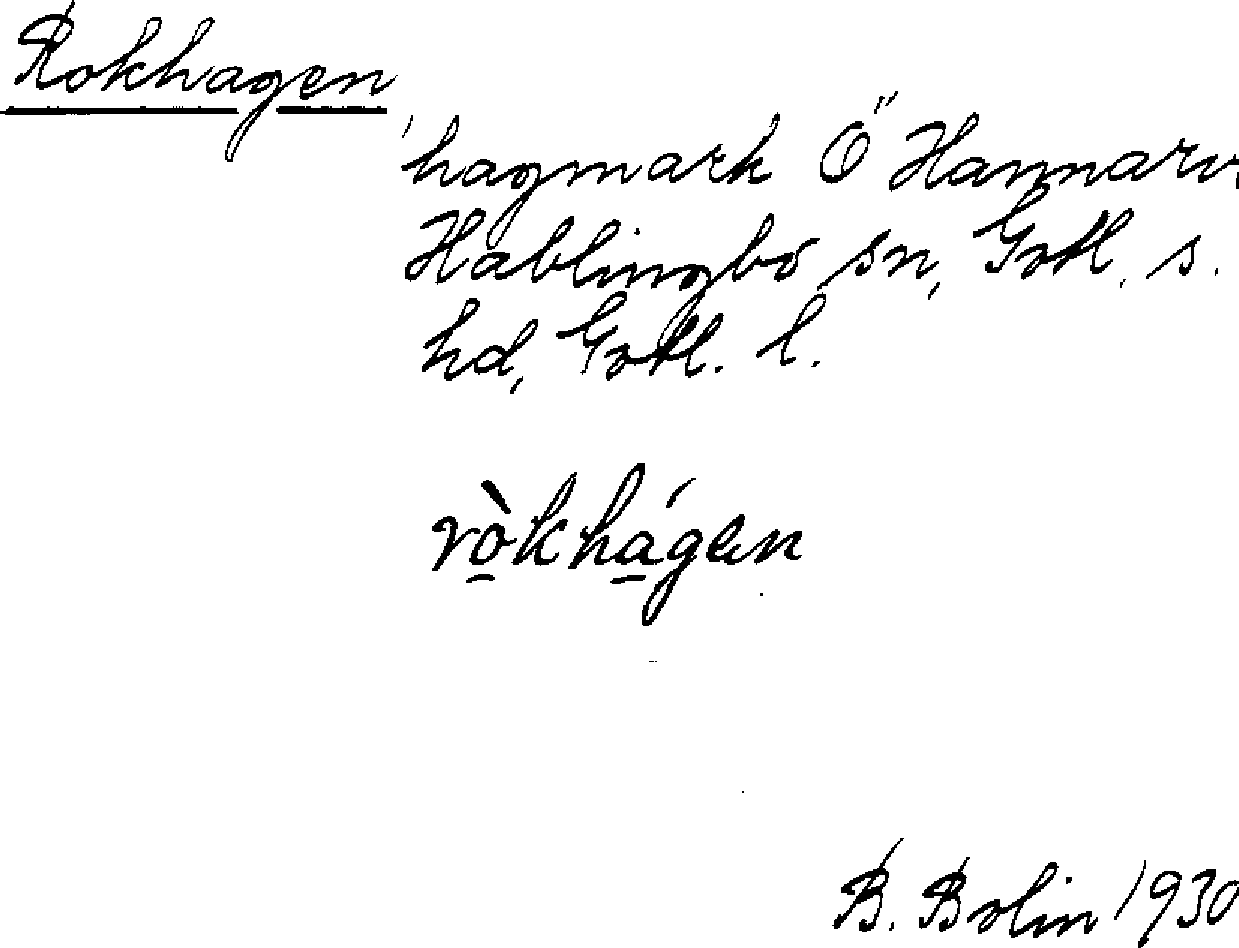 Rokhagen
hagmark Ö Hannarv,
Hablingbo sn, Gotl. s.
hd, Gotl. l.
rò̲khá̲gen
B. Bolin 1930